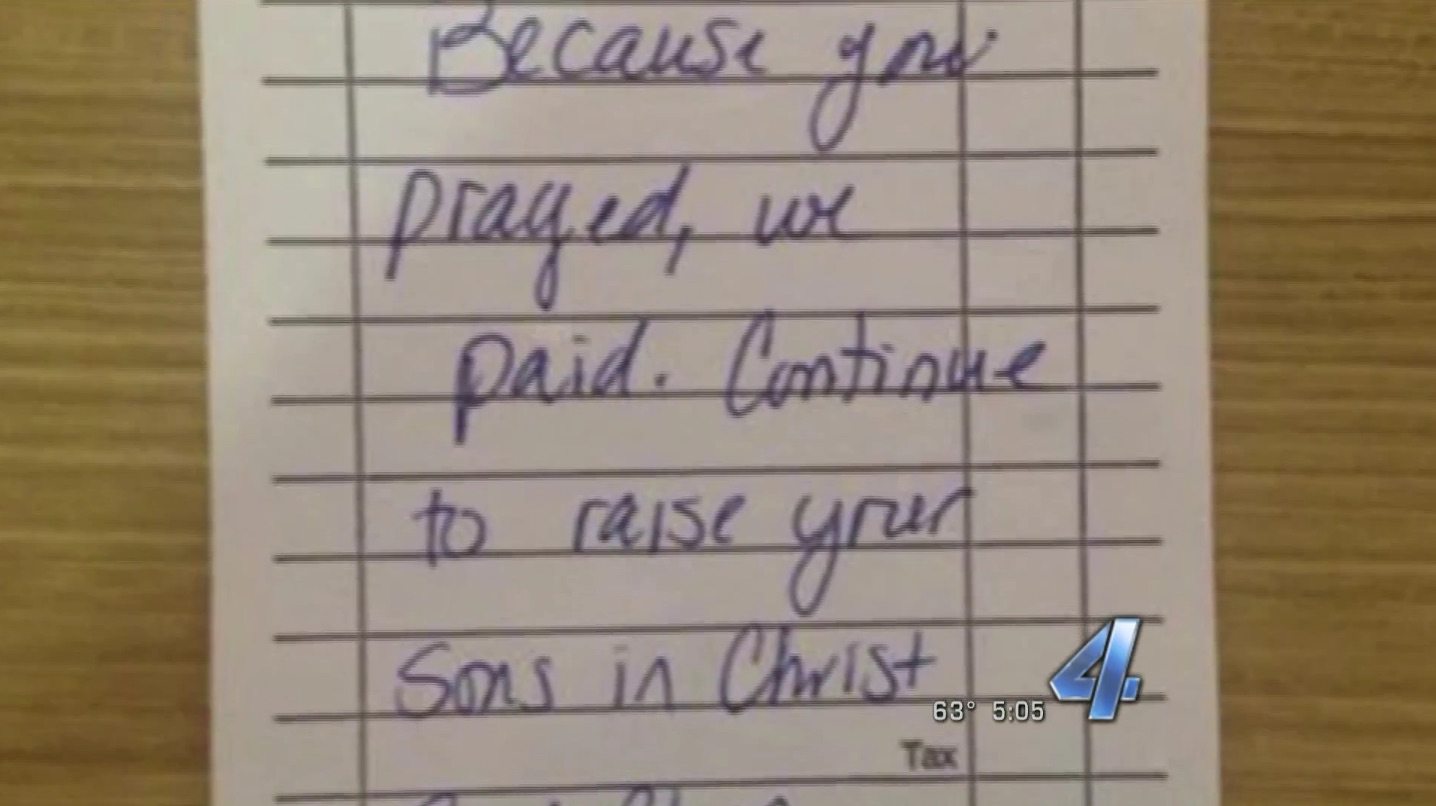 Because you
prayed, we
paid. Continue
to raise your
Sons in Christ
63° 5:05
4
Tax